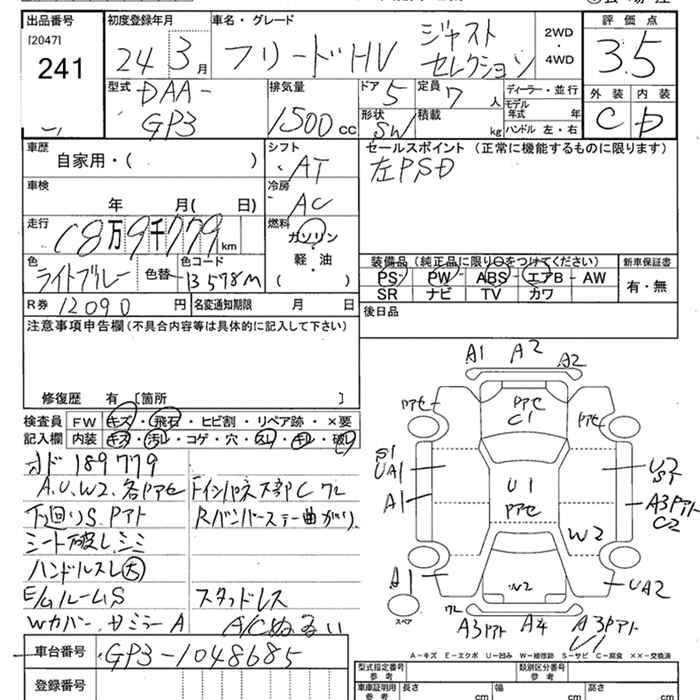 出品番号
[2047]
241
初度登録年月
24 3月
車名・グレード
フリードHV ジャスト
セレクション
2WD
・
4WD
評価点
3.5
型式
DAA-
GP3
排気量
1500 cc
ドア 5
定員 7 人
形状 SW
積載 kg
ディーラー・並行
モデル年式 年
ハンドル 左・右
外装 内装
C D
車歴
自家用・( )
シフト
AT
セールスポイント (正常に機能するものに限ります)
左PSD
車検
年 月( 日)
冷房
AC
走行
18万9千779km
燃料
ガソリン
・
軽・油
( )
色
ライトブルー
色替
色コード
B578M
装備品 (純正品に限り○をつけてください)
PS PW ABS エアB AW
SR ナビ TV カワ
新車保証書
有・無
R券 12090円
名変通知期限 月 日
後日品
注意事項申告欄 (不具合内容等は具体的に記入して下さい)
修復歴 有 [箇所 ]
検査員
記入欄
FW キズ・飛石・ヒビ割・リペア跡・×要
内装 キズ・汚レ・コゲ・穴・スレ・キレ・破レ
オド 189779
A.U.W2、各Pアセ
下廻りS、Pアト
シート破レ、シミ
ハンドルスレ大
E/GルームS
Wカバー、サミラーA
FインパネズC ワレ
Rバンパーステー曲がり
スタッドレス
A/Cぬるい
A1 A2 A2
Pアセ
Pアセ
C1
Pアセ
S1
UA1
A1
U1
Pアセ
U2
S1
A3Pアト
C2
W2
A1
W2
UA2
スペア
ワレ
A3Pアト A4 A3Pアト
U1
A-キズ E-エクボ U-凹み W-補修跡 S-サビ C-腐食 ××-交換済
車台番号 GP3-1048685
登録番号
型式指定番号
参考
類別区分番号
参考
車庫証明用
参考
長さ cm
幅 cm
高さ cm